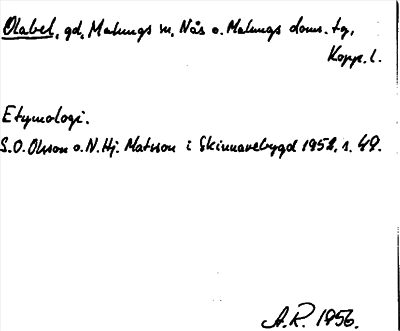 Olabel, gd, Malungs sn, Nås o. Malungs doms. tg,
Kopp. l.
Etymologi.
S.O. Olsson o. N. Hj. Matsson i Skinnarebygd 1952. s. 49.
A.R. 1956.